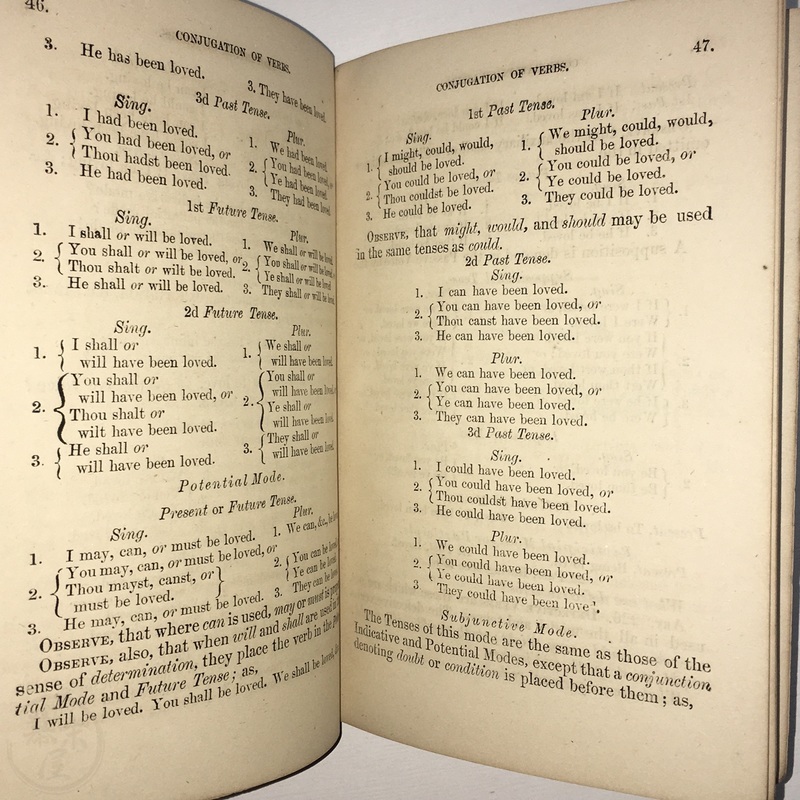 46.
CONJUGATION OF VERBS.
3. He has been loved.
3. They have been loved.
3d Past Tense.
Sing.
1. I had been loved.
2. { You had been loved, or
Thou hadst been loved.
3. He had been loved.
Plur.
1. We had been loved.
2. { You had been loved,
Ye had been loved.
3. They had been loved.
1st Future Tense.
Sing.
1. I shall or will be loved.
2. { You shall or will be loved, or
Thou shalt or wilt be loved.
3. He shall or will be loved.
Plur.
1. We shall or will be loved.
2. { You shall or will be loved,
Ye shall or will be loved.
3. They shall or will be loved.
2d Future Tense.
Sing.
1. { I shall or
will have been loved.
2. { You shall or
will have been loved, or
Thou shalt or
wilt have been loved.
3. { He shall or
will have been loved.
Plur.
1. { We shall or
will have been loved.
2. { You shall or
will have been loved,
Ye shall or
will have been loved.
3. { They shall or
will have been loved.
Potential Mode.
Present or Future Tense.
Sing.
1. I may, can, or must be loved.
2. { You may, can, or must be loved, or
Thou mayst, canst, or }
must be loved.
3. He may, can, or must be loved.
Plur.
1. We can, &c., be
2. { You can be loved
Ye can be loved
3. They can be loved
OBSERVE, that where can is used, may or must is
OBSERVE, also, that when will and shall are used in
sense of determination, they place the verb in the
tial Mode and Future Tense; as,
I will be loved. You shall be loved. We shall be loved,
47.
CONJUGATION OF VERBS.
1st Past Tense.
Sing.
1. { I might, could, would,
should be loved.
2. { You could be loved, or
Thou couldst be loved.
3. He could be loved.
Plur.
1. { We might, could, would,
should be loved.
2. { You could be loved, or
Ye could be loved.
3. They could be loved.
OBSERVE, that might, would, and should may be used
in the same tenses as could.
2d Past Tense.
Sing.
1. I can have been loved.
2. { You can have been loved, or
Thou canst have been loved.
3. He can have been loved.
Plur.
1. We can have been loved.
2. { You can have been loved, or
Ye can have been loved.
3. They can have been loved.
3d Past Tense.
Sing.
1. I could have been loved.
2. { You could have been loved, or
Thou couldst have been loved.
3. He could have been loved.
Plur.
1. We could have been loved.
2. { You could have been loved, or
Ye could have been loved.
3. They could have been loved.
Subjunctive Mode.
The Tenses of this mode are the same as those of the
Indicative and Potential Modes, except that a conjunction
denoting doubt or condition is placed before them; as,